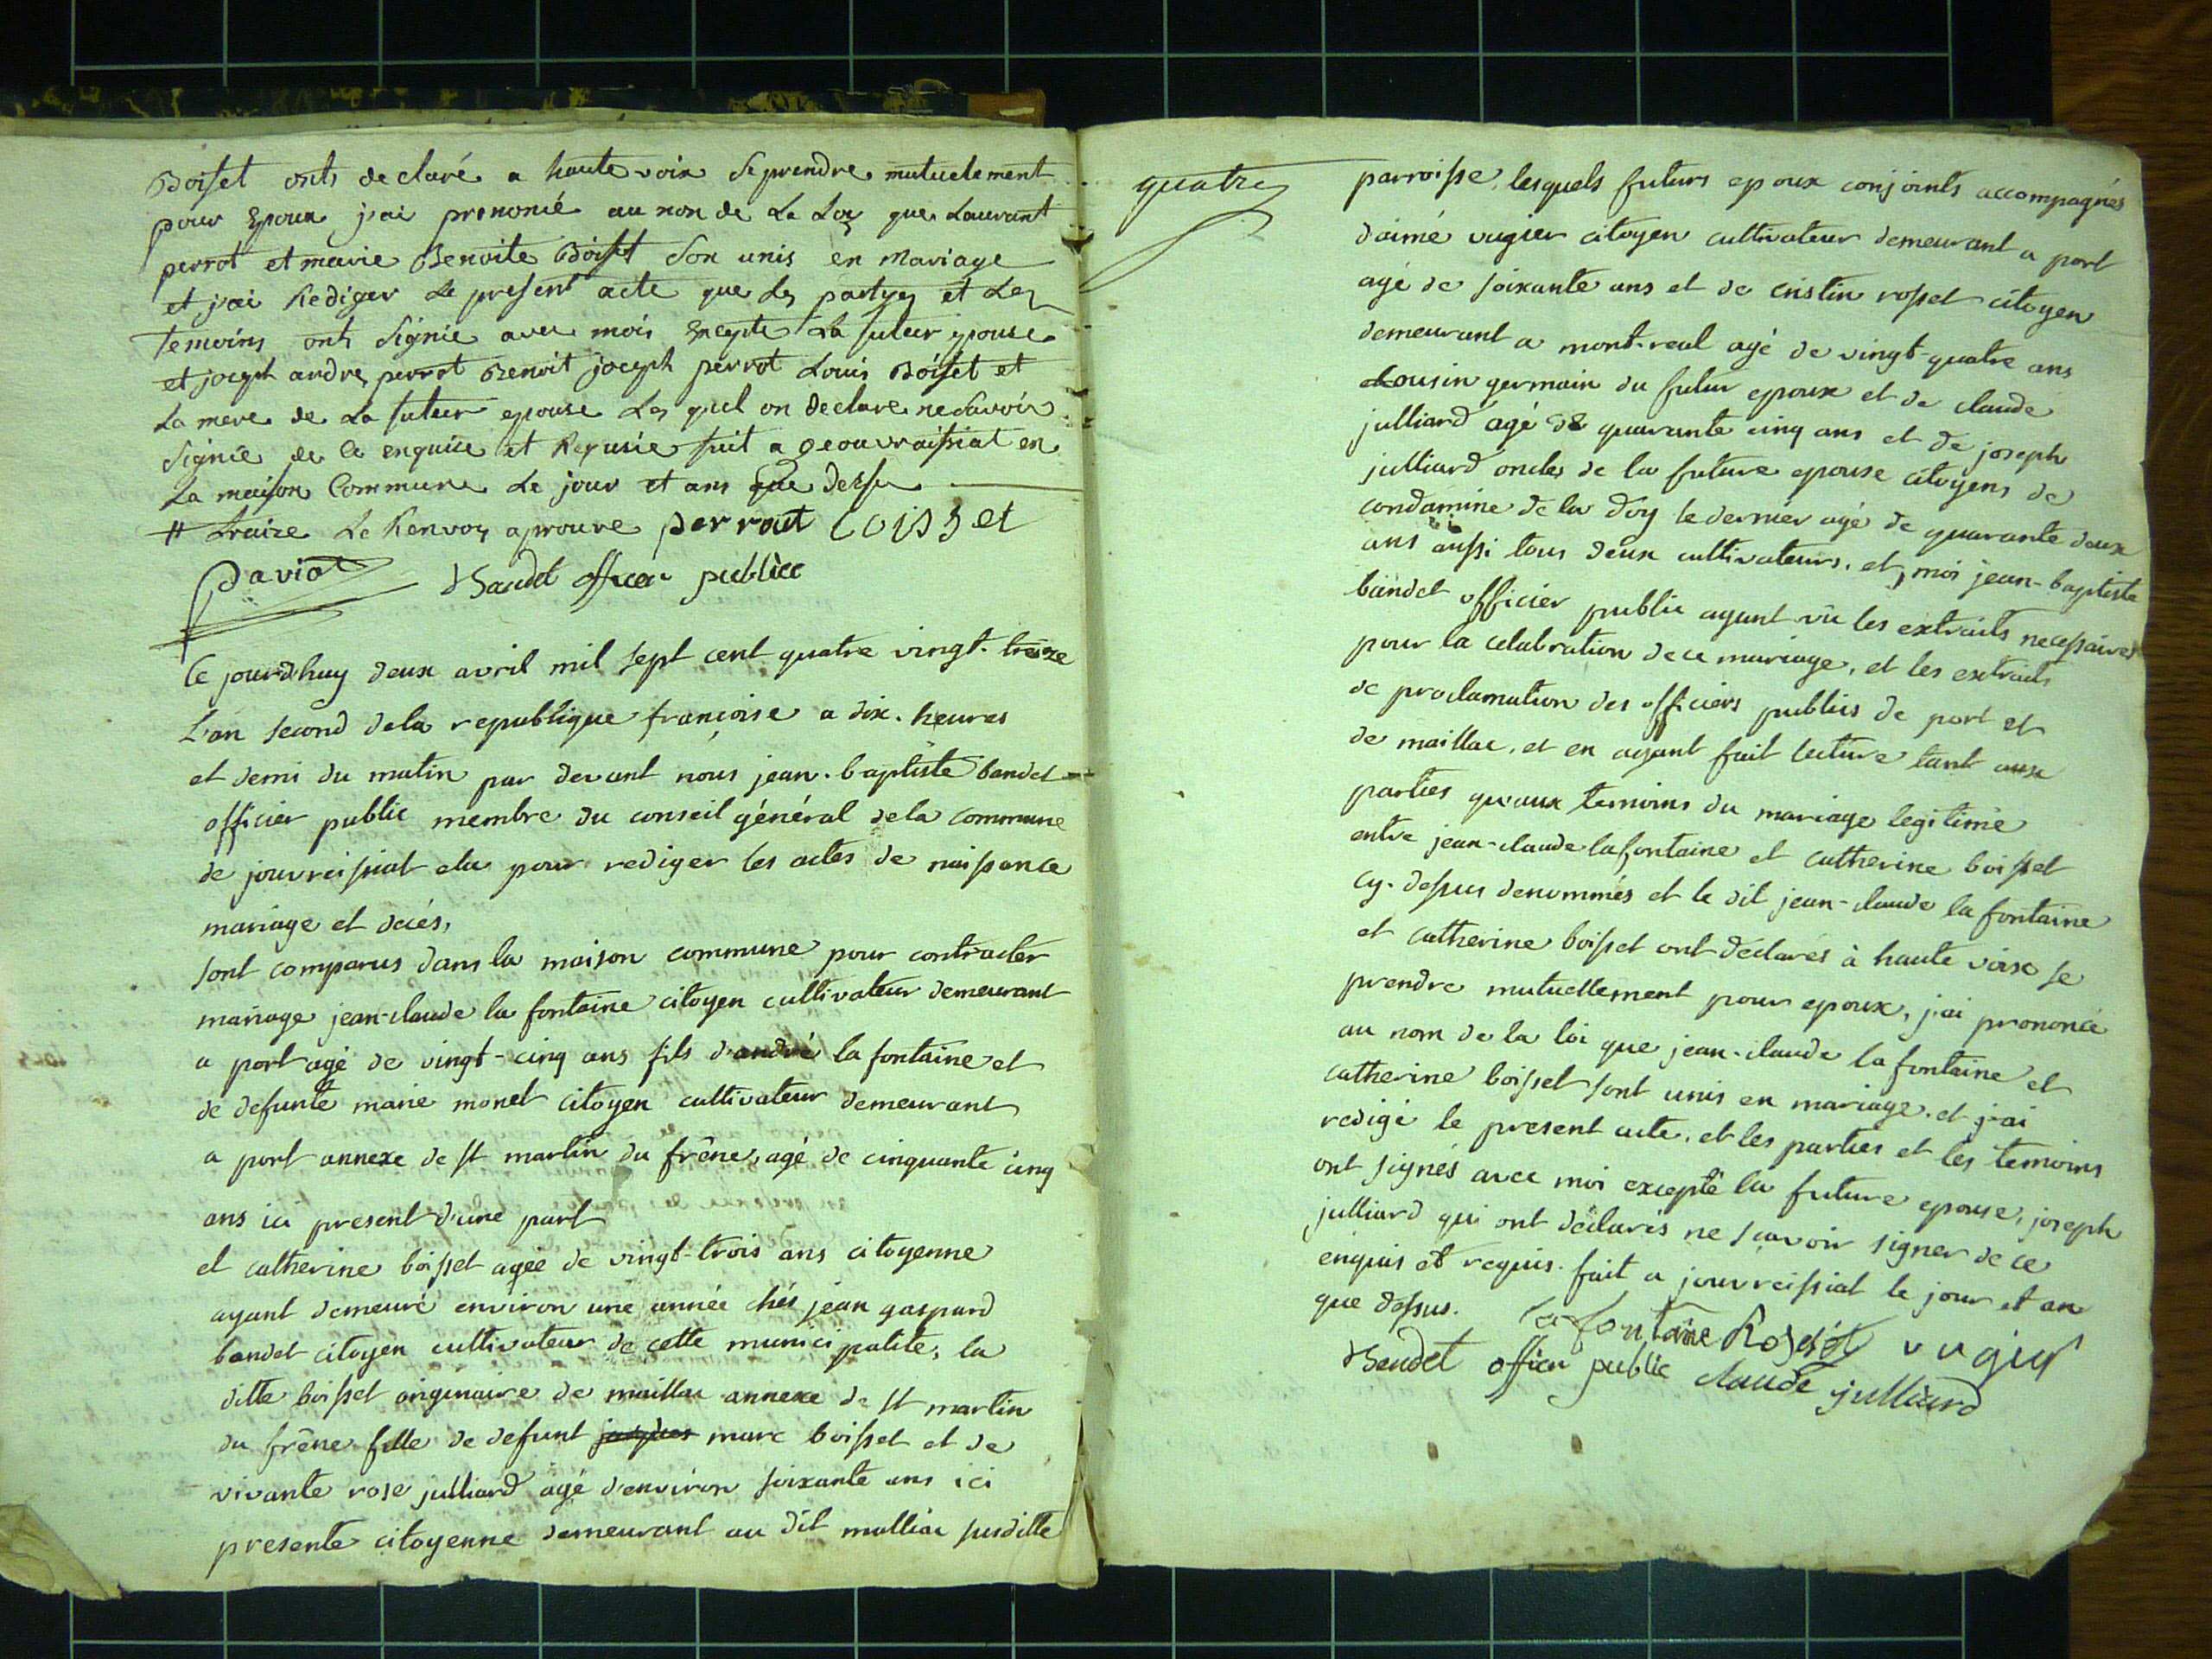 Boisset onts declaré a haute voix se prendre mutuelement
pour Epoux j'ai prononcé au non de La Loy que Laurant
perrot et marie Benoite Boisset son unis en Mariage
et j'ai Rediger Le present acte que Les partyes et Les
temoins onts Signie avec mois Excepte La futeur epouse
et joseph andre perrot Benoit joseph perrot Louis Boisset et
La mere de La futeur epouse Les quel on declare ne savoir
Signie de ce enquise et Requise fait a geouvraissiat en
La maison Commune Le jour et ans que dessu
# traize Le Renvoy aprouve perrout Loisset
Daviot Bandet officer publice
Ce jourd'huy deux avril mil sept cent quatre vingt-treize
L'an second dela republique françoise a dix. heures
et demi du matin par devant nous jean-baptiste bandet
officier public membre du conseil général dela commune
de jouvreissiat elu pour rediger les actes de naissance
mariage et decés,
sont comparus dans la maison commune pour contracter
mariage jean-claude la fontaine citoyen cultivateur demeurant
a port agé de vingt-cinq ans fils d'andré la fontaine et
de defunte marie monet citoyen cultivateur demeurant
a port annexe de st martin du frêne, agé de cinquante cinq
ans ici present d'une part
et catherine boisset agée de vingt-trois ans citoyenne
ayant demeuré environ une année chés jean gaspard
bandet citoyen cultivateur de cette municipalité, la
ditte boisset originaire de maillac annexe de st martin
du frêne fille de defunt jacques marc boisset et de
vivante rose julliard agé d'environ soixante ans ici
presente citoyenne demeurant au dit malliac susditte
quatre
parroisse, lesquels futurs epoux conjoints accompagnés
d'aimé vugier citoyen cultivateur demeurant a port
agé de soixante ans et de cristin rosset citoyen
demeurant a mont-real agé de vingt-quatre ans
cousin germain du futur epoux et de claude
julliard agé de quarante cinq ans et de joseph
julliard oncles de la future epouse citoyens de
condamine de la doy le dernier agé de quarante deux
ans aussi tous deux cultivateurs. et, moi jean-baptiste
bandet officier public ayant vû les extraits necessaires
pour la celebration de ce mariage, et les extraits
de proclamation des officiers publics de port et
de maillac, et en ayant fait lecture tant aux
parties qu'aux temoins du mariage legitime
entre jean-claude lafontaine et catherine boisset
cy-dessus denommés et le dit jean-claude la fontaine
et catherine boisset ont déclarés à haute voix se
prendre mutuellement pour epoux, j'ai prononcé
au nom de la loi que jean-claude la fontaine et
catherine boisset sont unis en mariage. et j'ai
redigé le present acte, et les parties et les temoins
ont signés avec moi excepté la future epouse, joseph
julliard qui ont déclarés ne scavoir signer de ce
enquis et requis. fait a jouvreissiat le jour et an
que dessus. la fontaine Rosset vugier
Bandet officer public claude julliard